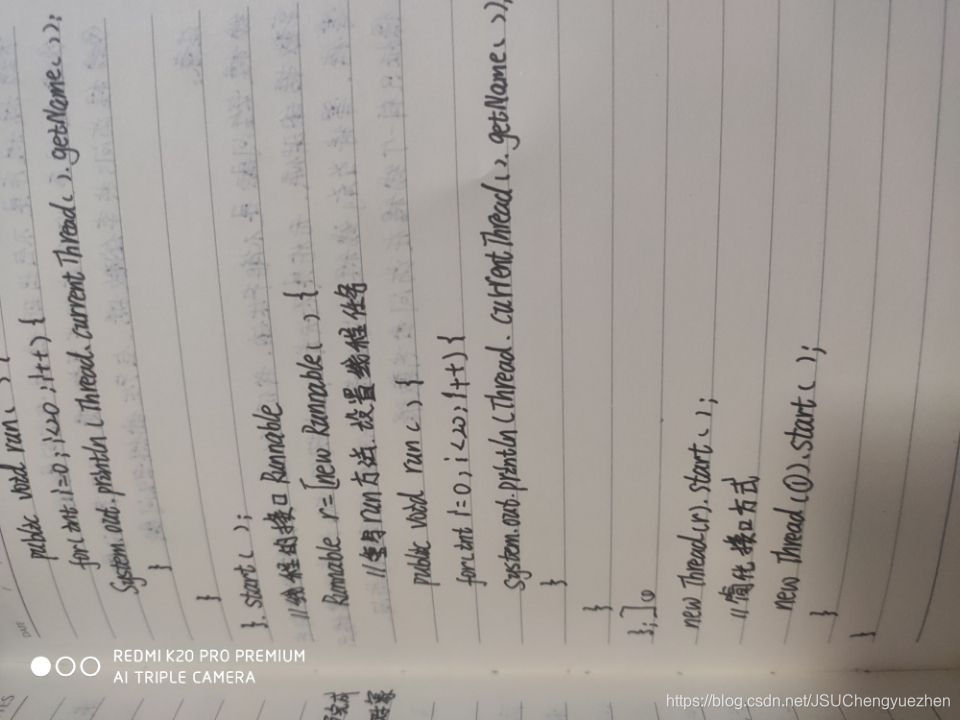 public void run() {
for(int i=0;i<20;i++) {
System.out.println(Thread.currentThread().getName());
}
}
}.start();
//线程的接口Runnable
Runnable r=[new Runnable() {
//重写run方法,设置线程任务
public void run() {
for(int i=0;i<20;i++) {
System.out.println(Thread.currentThread().getName());
}
}
};]①
new Thread(r).start();
//简化接口方式
new Thread(①).start();
}
}
REDMI K20 PRO PREMIUM
AI TRIPLE CAMERA
https://blog.csdn.net/JSUChengyuezhen